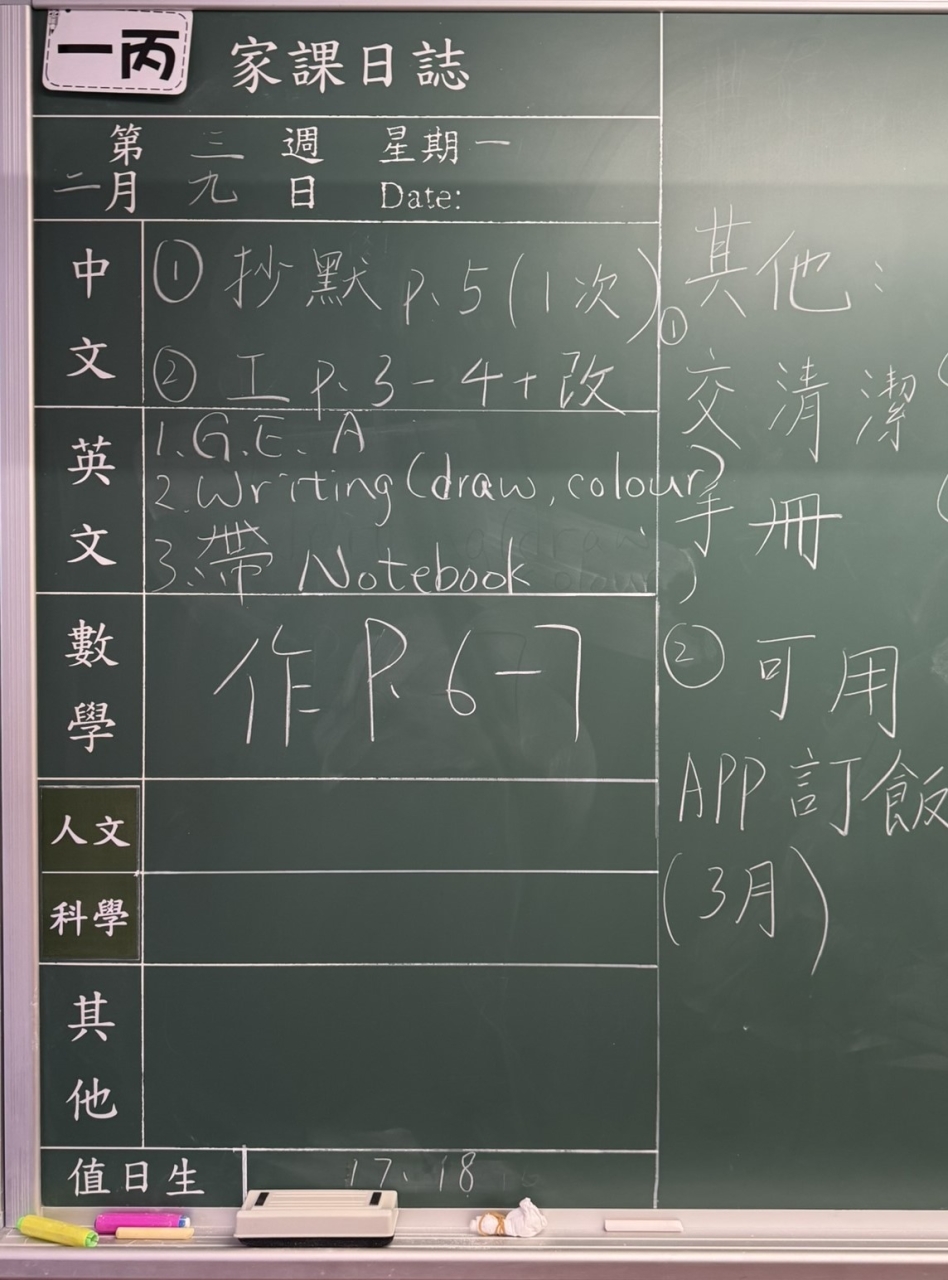 一丙 家課日誌
第 三 週 星期一
二月 九 日 Date:
中文
① 抄默 p.5(1次)
② 工 p.3-4+改
英文
1.G.E. A
2.Writing(draw, colour)
3.帶 Notebook
數學
作 P.6-7
人文
科學
其他
值日生 17、18
其他：
①
交清潔
手冊
② 可用
APP訂飯
(3月)